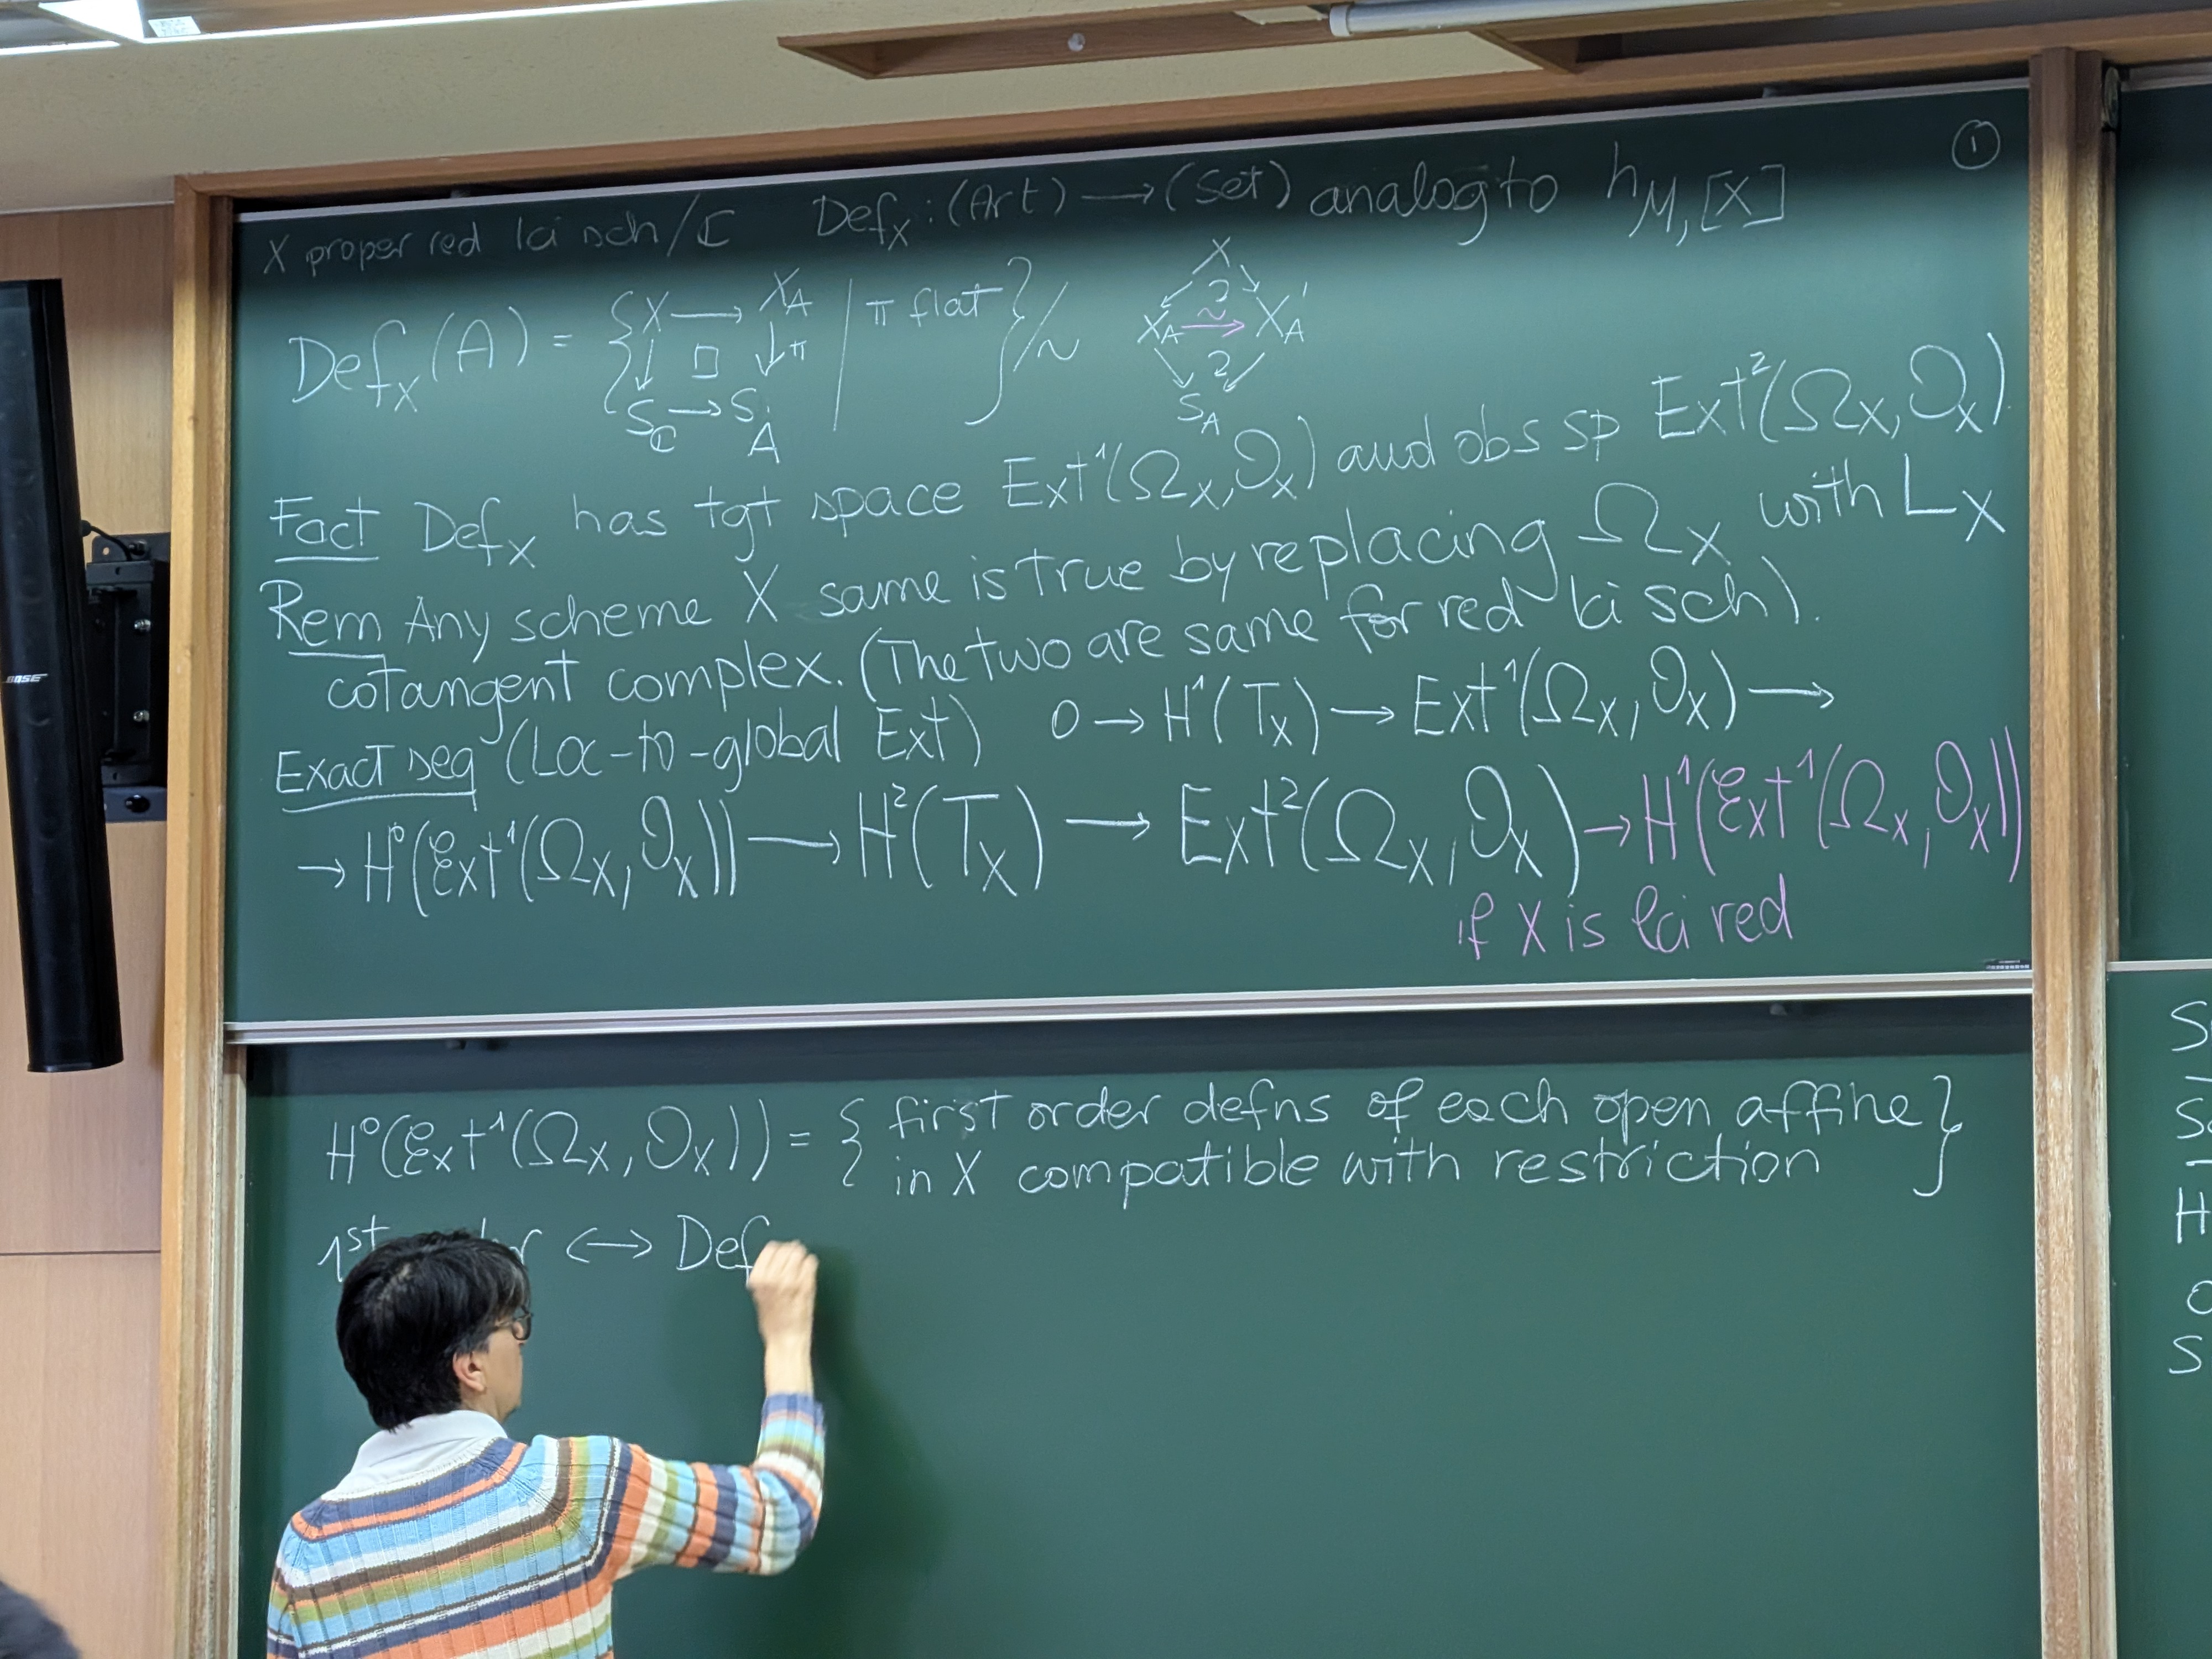 ①
X proper red lci sch/ℂ Def_X : (Art) ⟶ (Set) analog to h_{M,[X]}
Def_X(A) = { X ⟶ X_A ↓ □ ↓π S_ℂ → S_A | π flat } /~ X X_A ~→ X'_A S_A
Fact Def_X has tgt space Ext¹(Ω_X, O_X) and obs sp Ext²(Ω_X, O_X).
Rem Any scheme X same is true by replacing Ω_X with L_X
cotangent complex. (The two are same for red lci sch).
Exact seq (Loc-to-global Ext) 0 → H¹(T_X) → Ext¹(Ω_X, O_X) ⟶
→ H⁰(ℰxt¹(Ω_X, O_X)) ⟶ H²(T_X) ⟶ Ext²(Ω_X, O_X) → H¹(ℰxt¹(Ω_X, O_X))
if X is lci red
H⁰(ℰxt¹(Ω_X, O_X)) = { first order defns of each open affine
in X compatible with restriction }
1st ↔ Def
BOSE